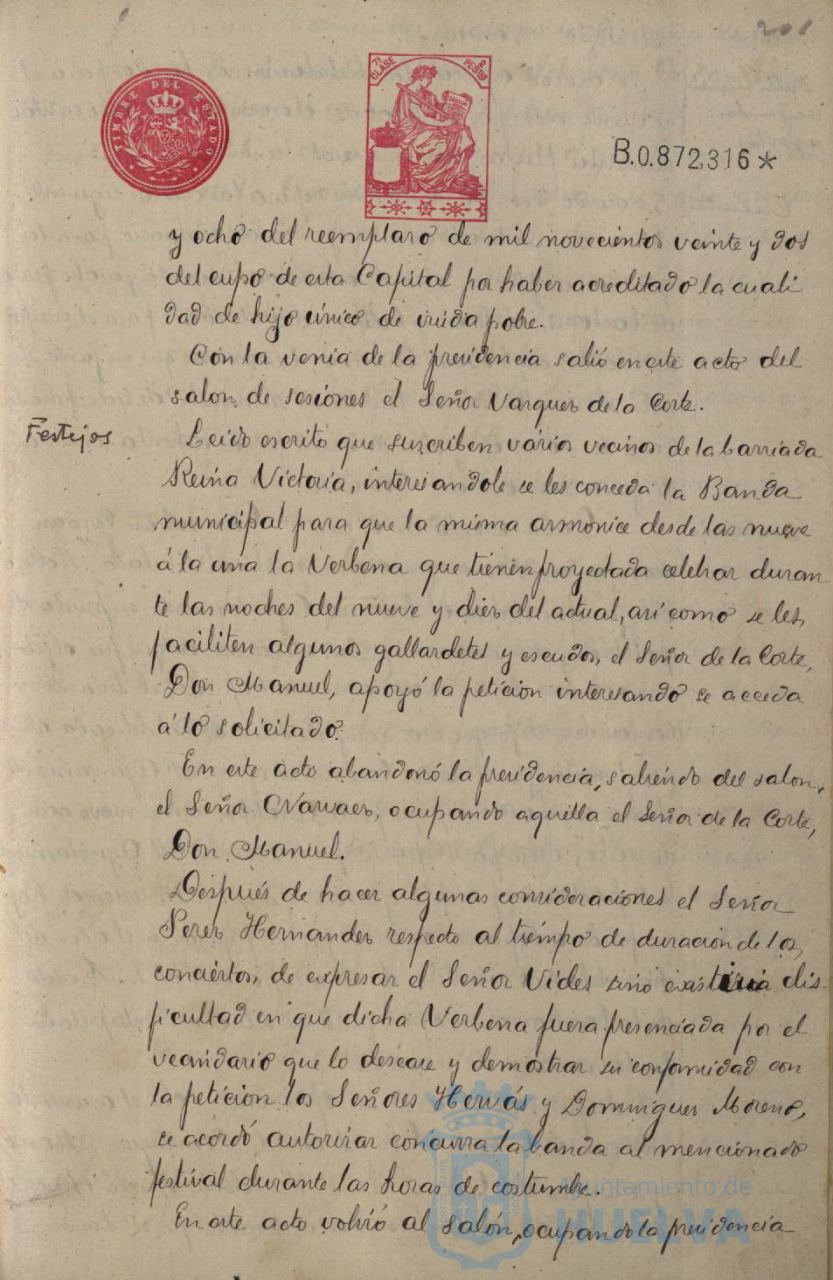 201
TIMBRE DEL ESTADO
7ª CLASE
2 PESETAS
B.0.872,316*
y ocho del reemplazo de mil novecientos veinte y dos
del cupo de esta Capital por haber acreditado la cuali
dad de hijo único de viuda pobre.
Con la venia de la presidencia salió en este acto del
salon de sesiones el Señor Vazquez de la Corte.
Festejos
Leido escrito que suscriben varios vecinos de la barriada
Reina Victoria, interesandole se les conceda la Banda
municipal para que la misma armonice desde las nueve
á la una la Verbena que tienen proyectada celebrar duran
te las noches del nueve y diez del actual, así como se les
faciliten algunos gallardetes y escudos, el Señor de la Corte,
Don Manuel, apoyó la peticion interesando se acceda
á lo solicitado.
En este acto abandonó la presidencia, saliendo del salon,
el Señor Narvaez, ocupando aquella el Señor de la Corte,
Don Manuel.
Después de hacer algunas consideraciones el Señor
Perez Hernandez respecto al tiempo de duración de los
conciertos, de expresar el Señor Vides sino existiria dis-
ficultad en que dicha Verbena fuera presenciada por el
vecindario que lo desease y demostrar su conformidad con
la peticion los Señores Hervás y Dominguez Moreno,
se acordó autorizar concurra la banda al mencionado
festival durante las horas de costumbre.
En este acto volvió al salón, ocupando la presidencia
Ayuntamiento de
HUELVA